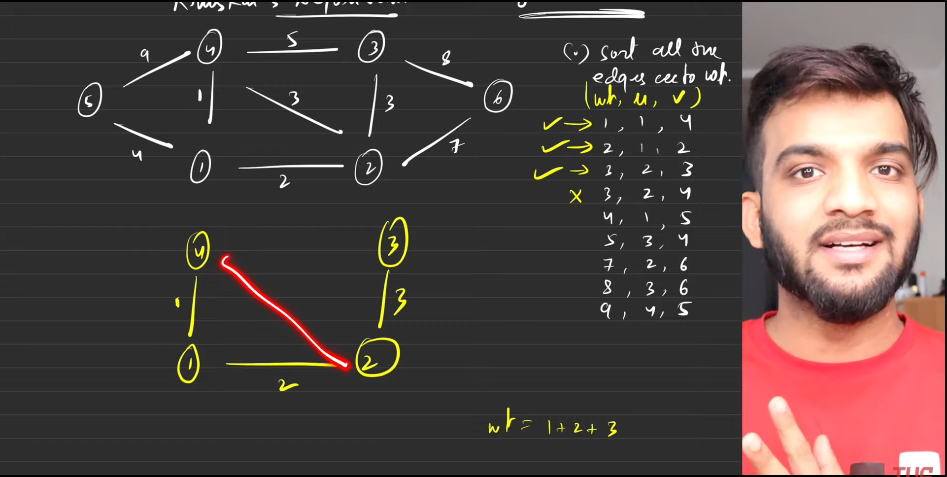 Kruskal's
9
4
5
3
8
5
1
3
3
6
4
1
2
2
7
(.) sort all the
edges acc to wt.
(wt, u, v)
✓ → 1, 1, 4
✓ → 2, 1, 2
✓ → 3, 2, 3
x 3, 2, 4
4, 1, 5
5, 3, 4
7, 2, 6
8, 3, 6
9, 4, 5
4
3
1
3
1
2
2
wt = 1+2+3